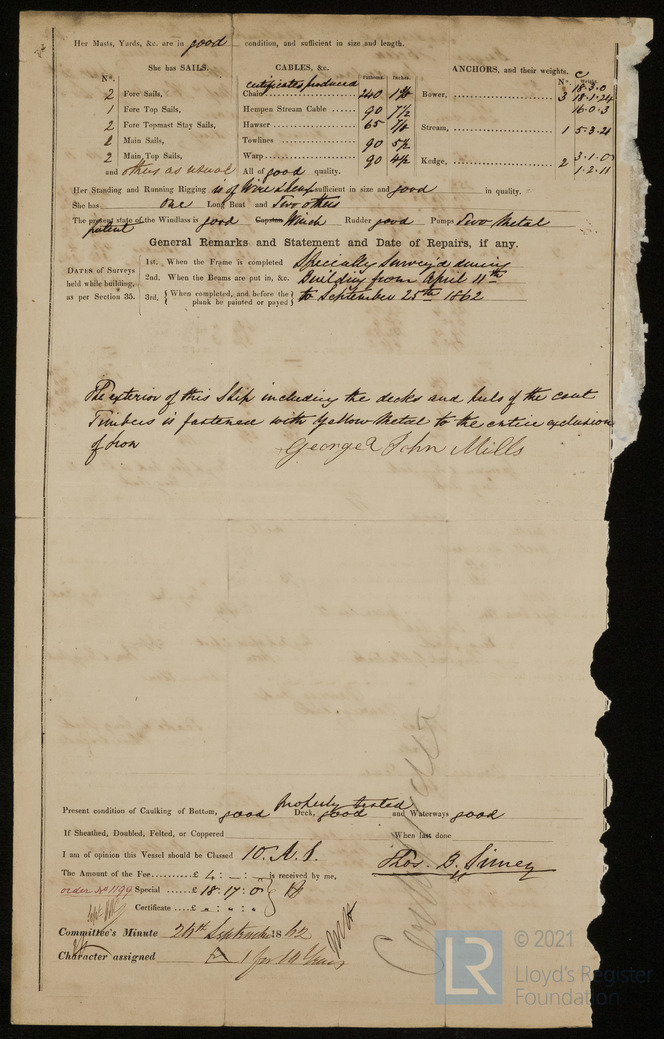 Her Masts, Yards, &c. are in good condition, and sufficient in size and length.
She has SAILS. CABLES, &c. ANCHORS, and their weights.
N°. Fathoms. Inches. N°. Weight.
certificates produced
2 Fore Sails, Chain 240 18.3.0
1 Fore Top Sails, Hempen Stream Cable 90 7½ Bower, 3 18.1.24
2 Fore Topmast Stay Sails, Hawser 65 16.0.3
2 Main Sails, Towlines 90 5½ Stream, 1 5.3.21
2 Main Top Sails, Warp 90 4½ Kedge, 2 3.1.0
and others as usual All of good quality. 1.2.11
Her Standing and Running Rigging is of Wire & Hemp sufficient in size and good in quality.
She has one Long Boat and Two others
The present state of the Windlass is good Capstan Winch Rudder good Pumps Two Metal
patent
General Remarks and Statement and Date of Repairs, if any.
DATES of Surveys held while building, as per Section 35.
1st. When the Frame is completed Specially Survey'd during
2nd. When the Beams are put in, &c. Building from April 11th
3rd. When completed, and before the plank be painted or payed to September 25th 1862
The exterior of this Ship including the decks and heels of the cant
Timbers is fastened with Yellow Metal to the entire exclusion
of Iron George John Mills
properly tested
Present condition of Caulking of Bottom, good Deck, good and Waterways good
If Sheathed, Doubled, Felted, or Coppered When last done
I am of opinion this Vessel should be Classed 10. A. 1.
The Amount of the Fee £ 4 : – : – is received by me, Thos. B. Simey
order No 1199 Special £ 18 . 17 : 0
Certificate £ „ : „ : „
Committee's Minute 26th September 1862
Character assigned A 1 for 10 Years
© 2021
Lloyd's Register
Foundation
LR